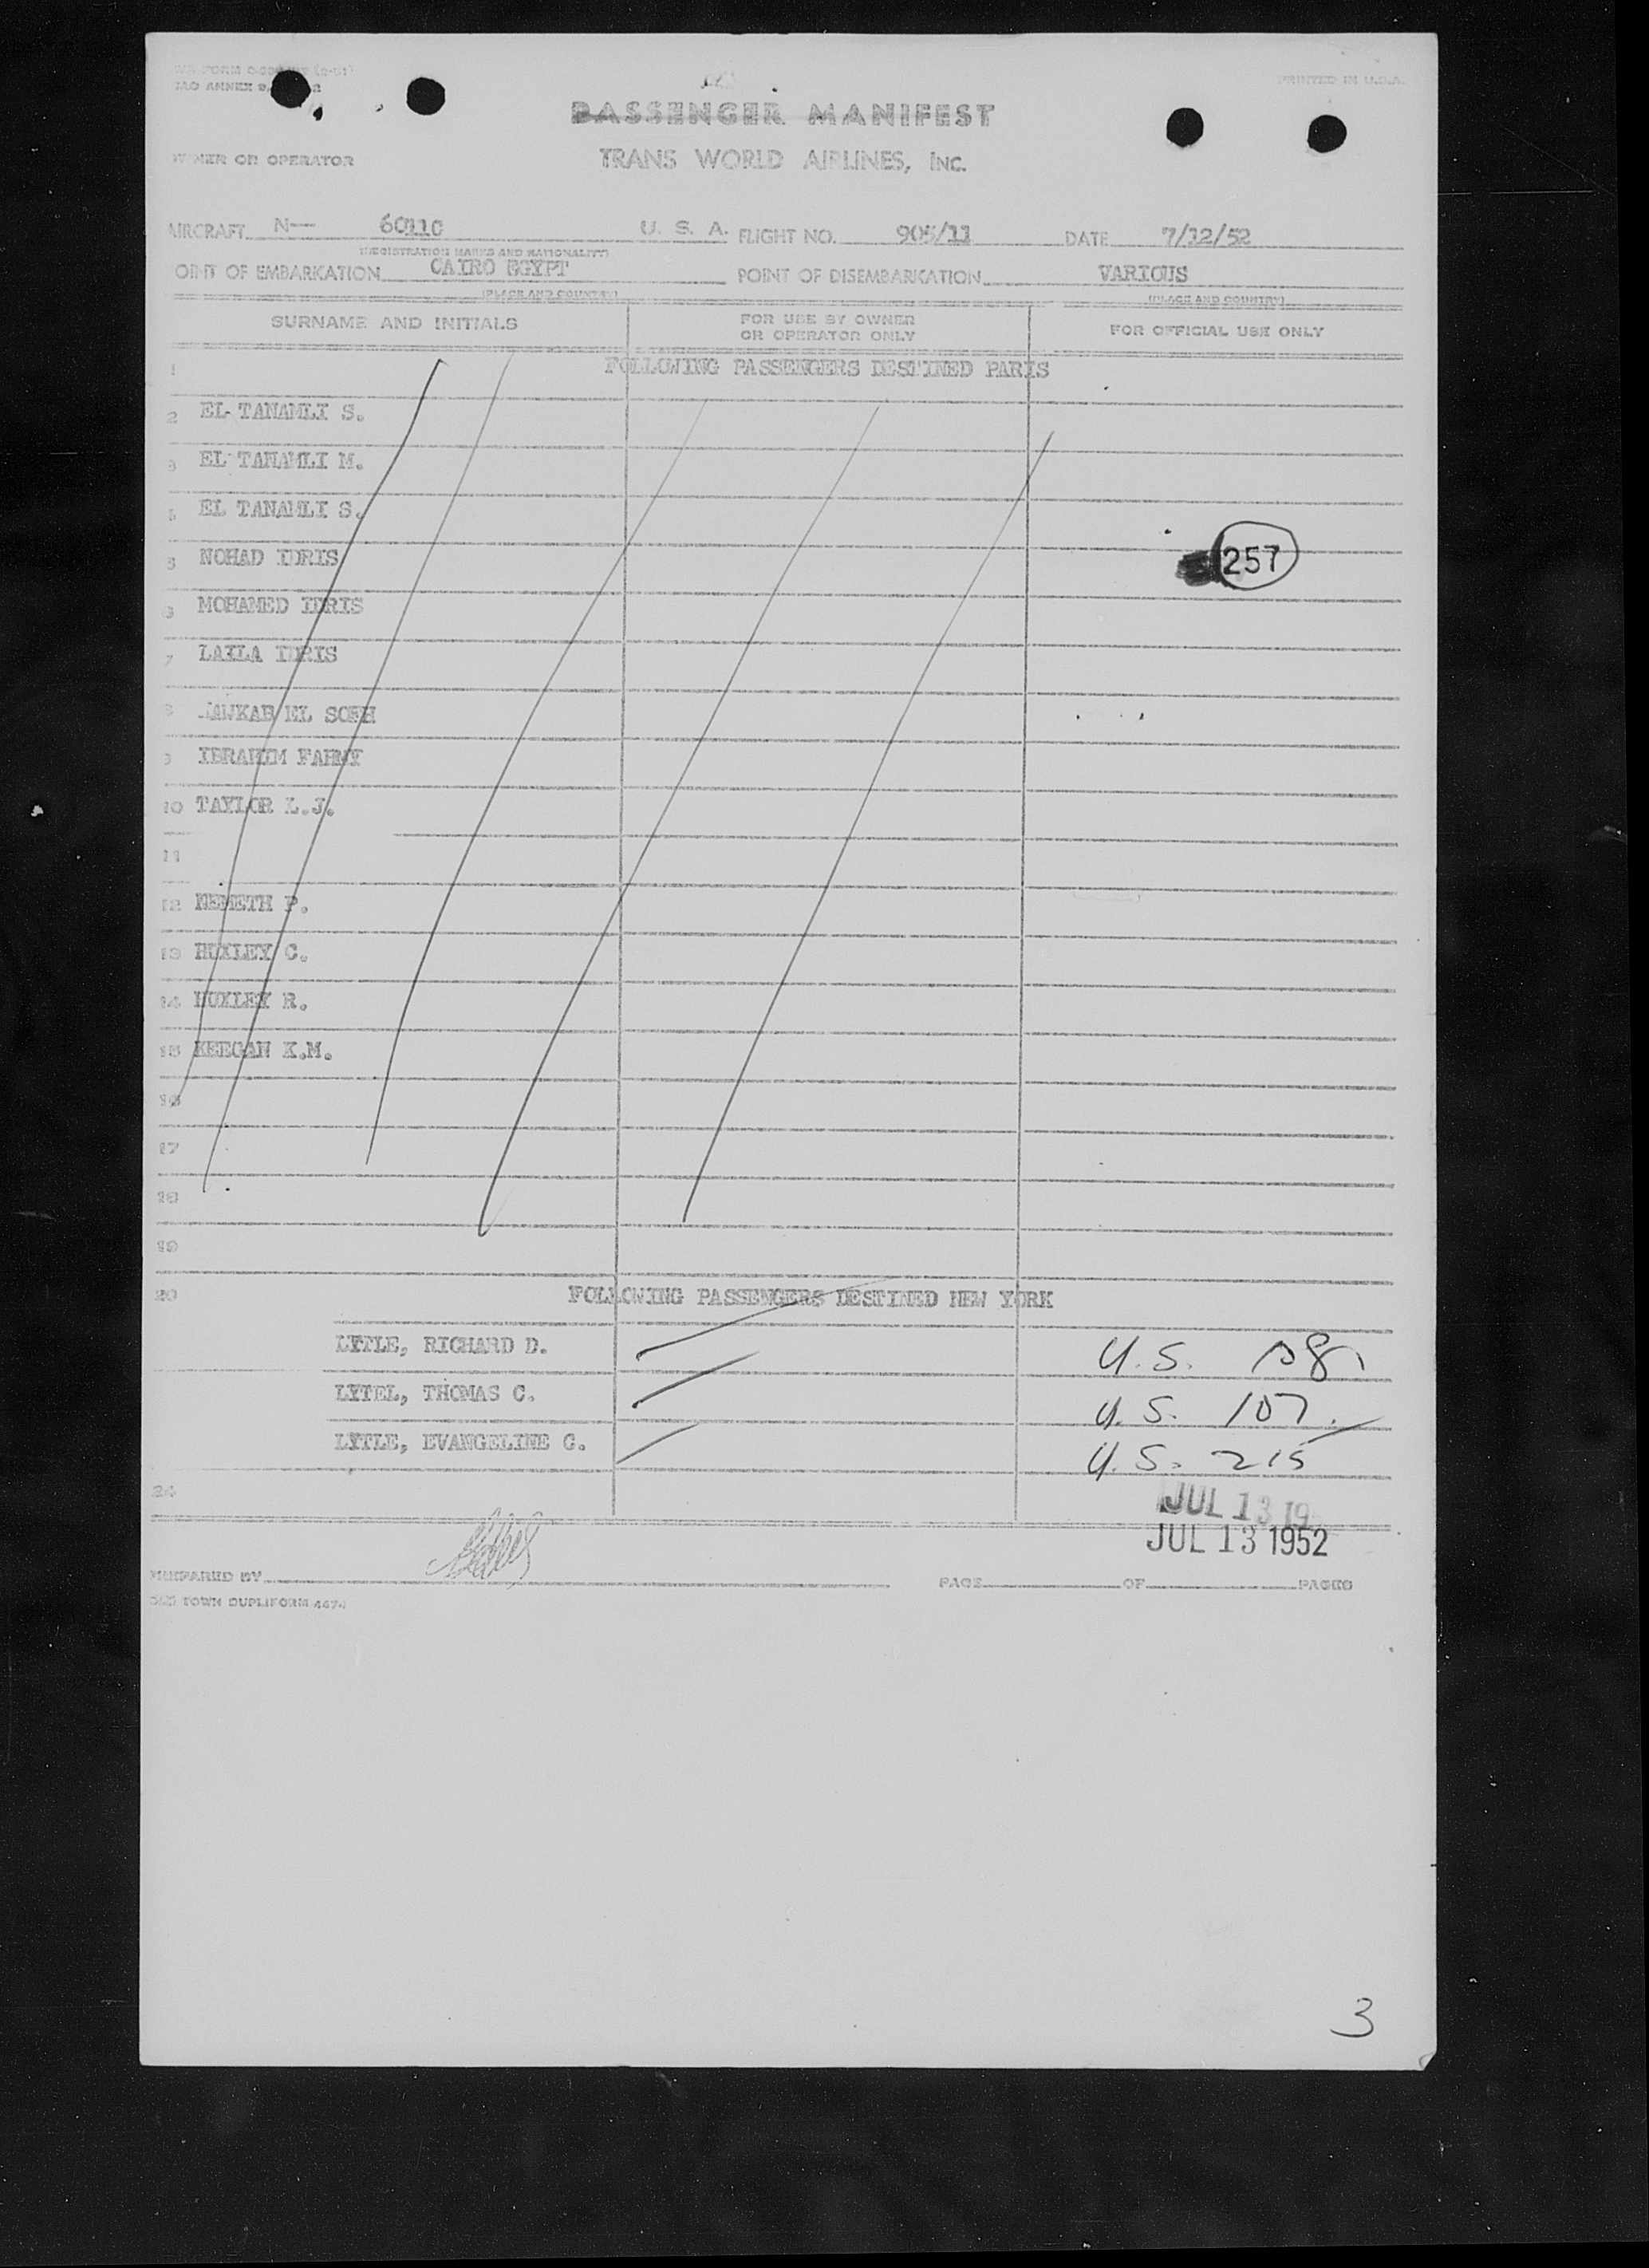 PRINTED IN U.S.A.
PASSENGER MANIFEST
OWNER OR OPERATOR TRANS WORLD AIRLINES, INC.
AIRCRAFT N— 6011C U. S. A. FLIGHT NO. 905/11 DATE 7/12/52
(REGISTRATION MARKS AND NATIONALITY)
OINT OF EMBARKATION CAIRO EGYPT POINT OF DISEMBARKATION VARIOUS
(PLACE AND COUNTRY) (PLACE AND COUNTRY)
SURNAME AND INITIALS FOR USE BY OWNER OR OPERATOR ONLY FOR OFFICIAL USE ONLY
1 FOLLOWING PASSENGERS DESTINED PARIS
2 EL TANAMLI S.
3 EL TANAMLI M.
EL TANAMLI S.
5 NOHAD IDRIS 257
MOHAMED IDRIS
7 LAILA IDRIS
8 EL SOHH
9 IBRAHIM FAHMY
10 TAYLOR L.J.
11
12 NEMETH P.
13 HUXLEY C.
14 HUXLEY R.
15 KEEGAN K.M.
16
17
18
19
20 FOLLOWING PASSENGERS DESTINED NEW YORK
LYTLE, RICHARD D. U.S.
LYTEL, THOMAS C. U.S. 107
LYTLE, EVANGELINE G. U.S. 215
24
JUL 13 19
JUL 13 1952
PREPARED BY PAGE OF PAGES
TOWN DUPLIFORM
3